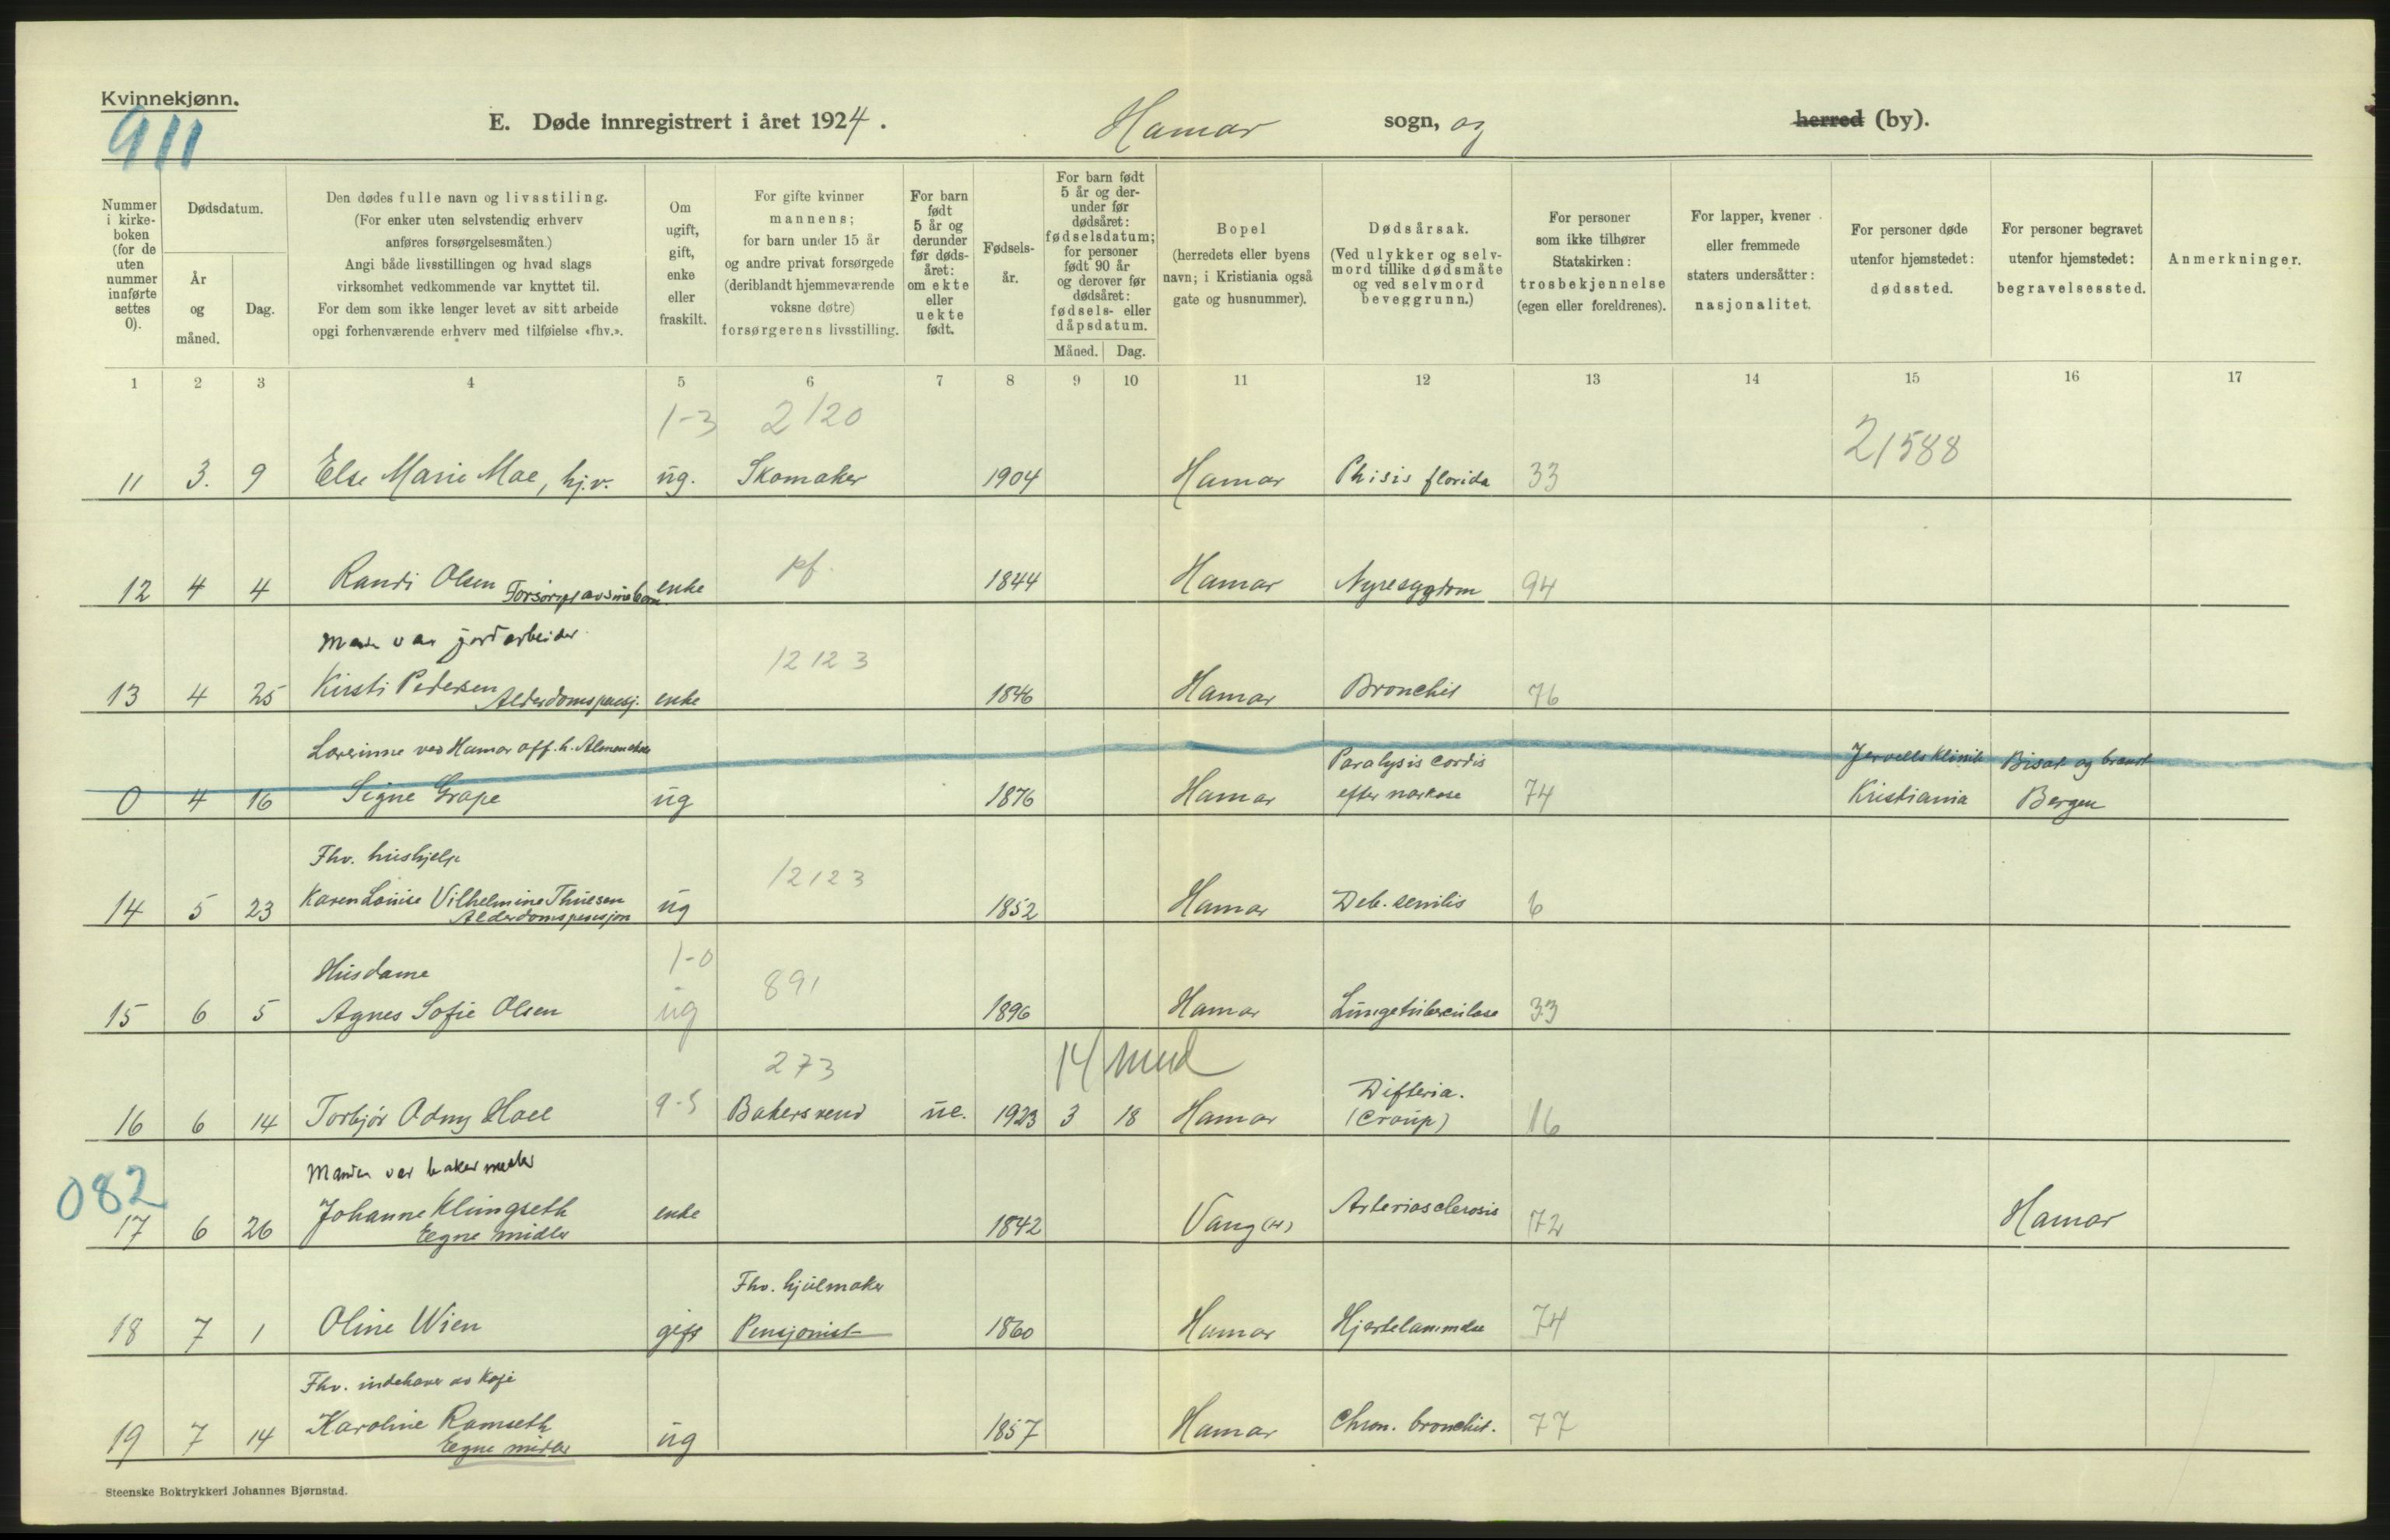 Kvinnekjønn.
911
E. Døde innregistrert i året 1924. Hamar sogn, og herred (by).
Nummer i kirkeboken (for de uten nummer innførte settes 0).
Dødsdatum.
År og måned.
Dag.
Den dødes fulle navn og livsstiling.
(For enker uten selvstendig erhverv
anføres forsørgelsesmåten.)
Angi både livsstillingen og hvad slags
virksomhet vedkommende var knyttet til.
For dem som ikke lenger levet av sitt arbeide
opgi forhenværende erhverv med tilføielse «fhv.».
Om ugift, gift, enke eller fraskilt.
For gifte kvinner
mannens;
for barn under 15 år
og andre privat forsørgede
(deriblandt hjemmeværende
voksne døtre)
forsørgerens livsstilling.
For barn født 5 år og derunder før dødsåret: om ekte eller uekte født.
Fødselsår.
For barn født 5 år og derunder før dødsåret: fødselsdatum; for personer født 90 år og derover før dødsåret: fødsels- eller dåpsdatum.
Måned. Dag.
Bopel
(herredets eller byens
navn; i Kristiania også
gate og husnummer).
Dødsårsak.
(Ved ulykker og selvmord tillike dødsmåte og ved selvmord beveggrunn.)
For personer
som ikke tilhører
Statskirken:
trosbekjennelse
(egen eller foreldrenes).
For lapper, kvener
eller fremmede
staters undersåtter:
nasjonalitet.
For personer døde
utenfor hjemstedet:
dødssted.
For personer begravet
utenfor hjemstedet:
begravelsessted.
Anmerkninger.
1 2 3 4 5 6 7 8 9 10 11 12 13 14 15 16 17
1-3 2120 21588
11 3. 9 Else Marie Moe, hj.v. ug. Skomaker 1904 Hamar Phisis florida 33
pf.
12 4 4 Randi Olsen Forsørget av sine barn enke 1844 Hamar Nyresygdom 94
Man var jordarbeider
12123
13 4 25 Kirsti Pedersen Alderdomspensj. enke 1846 Hamar Bronchit 76
Lærerinne ved Hamar off. h. Almenskole Paralysis cordis Jervells Klinik Bisat og brændt
0 4 16 Signe Grape ug 1876 Hamar efter narkose 74 Kristiania Bergen
Fhv. hushjelp
12123
14 5 23 Karen Louise Vilhelmine Thuesen ug 1852 Hamar Deb. senilis 6
Alderdomspensjon
Husdame 1-0 891
15 6 5 Agnes Sofie Olsen ug 1896 Hamar Lungetuberculose 33
273 14 mnd
Difteria.
16 6 14 Torbjör Odny Hoel 9-5 Bakersvend ue. 1923 3 18 Hamar (Croup) 16
082 Manden var bakermester
17 6 26 Johanne Klingseth enke 1842 Vang (H) Arteriosclerosis 72 Hamar
Egne midler
Fhv. hjulmaker
18 7 1 Oline Wien gift Pensjonist 1860 Hamar Hjertelammelse 74
Fhv. indehaver av Kafé
19 7 14 Karoline Ramseth ug 1857 Hamar Chron. bronchit. 77
Egne midler
Steenske Boktrykkeri Johannes Bjørnstad.